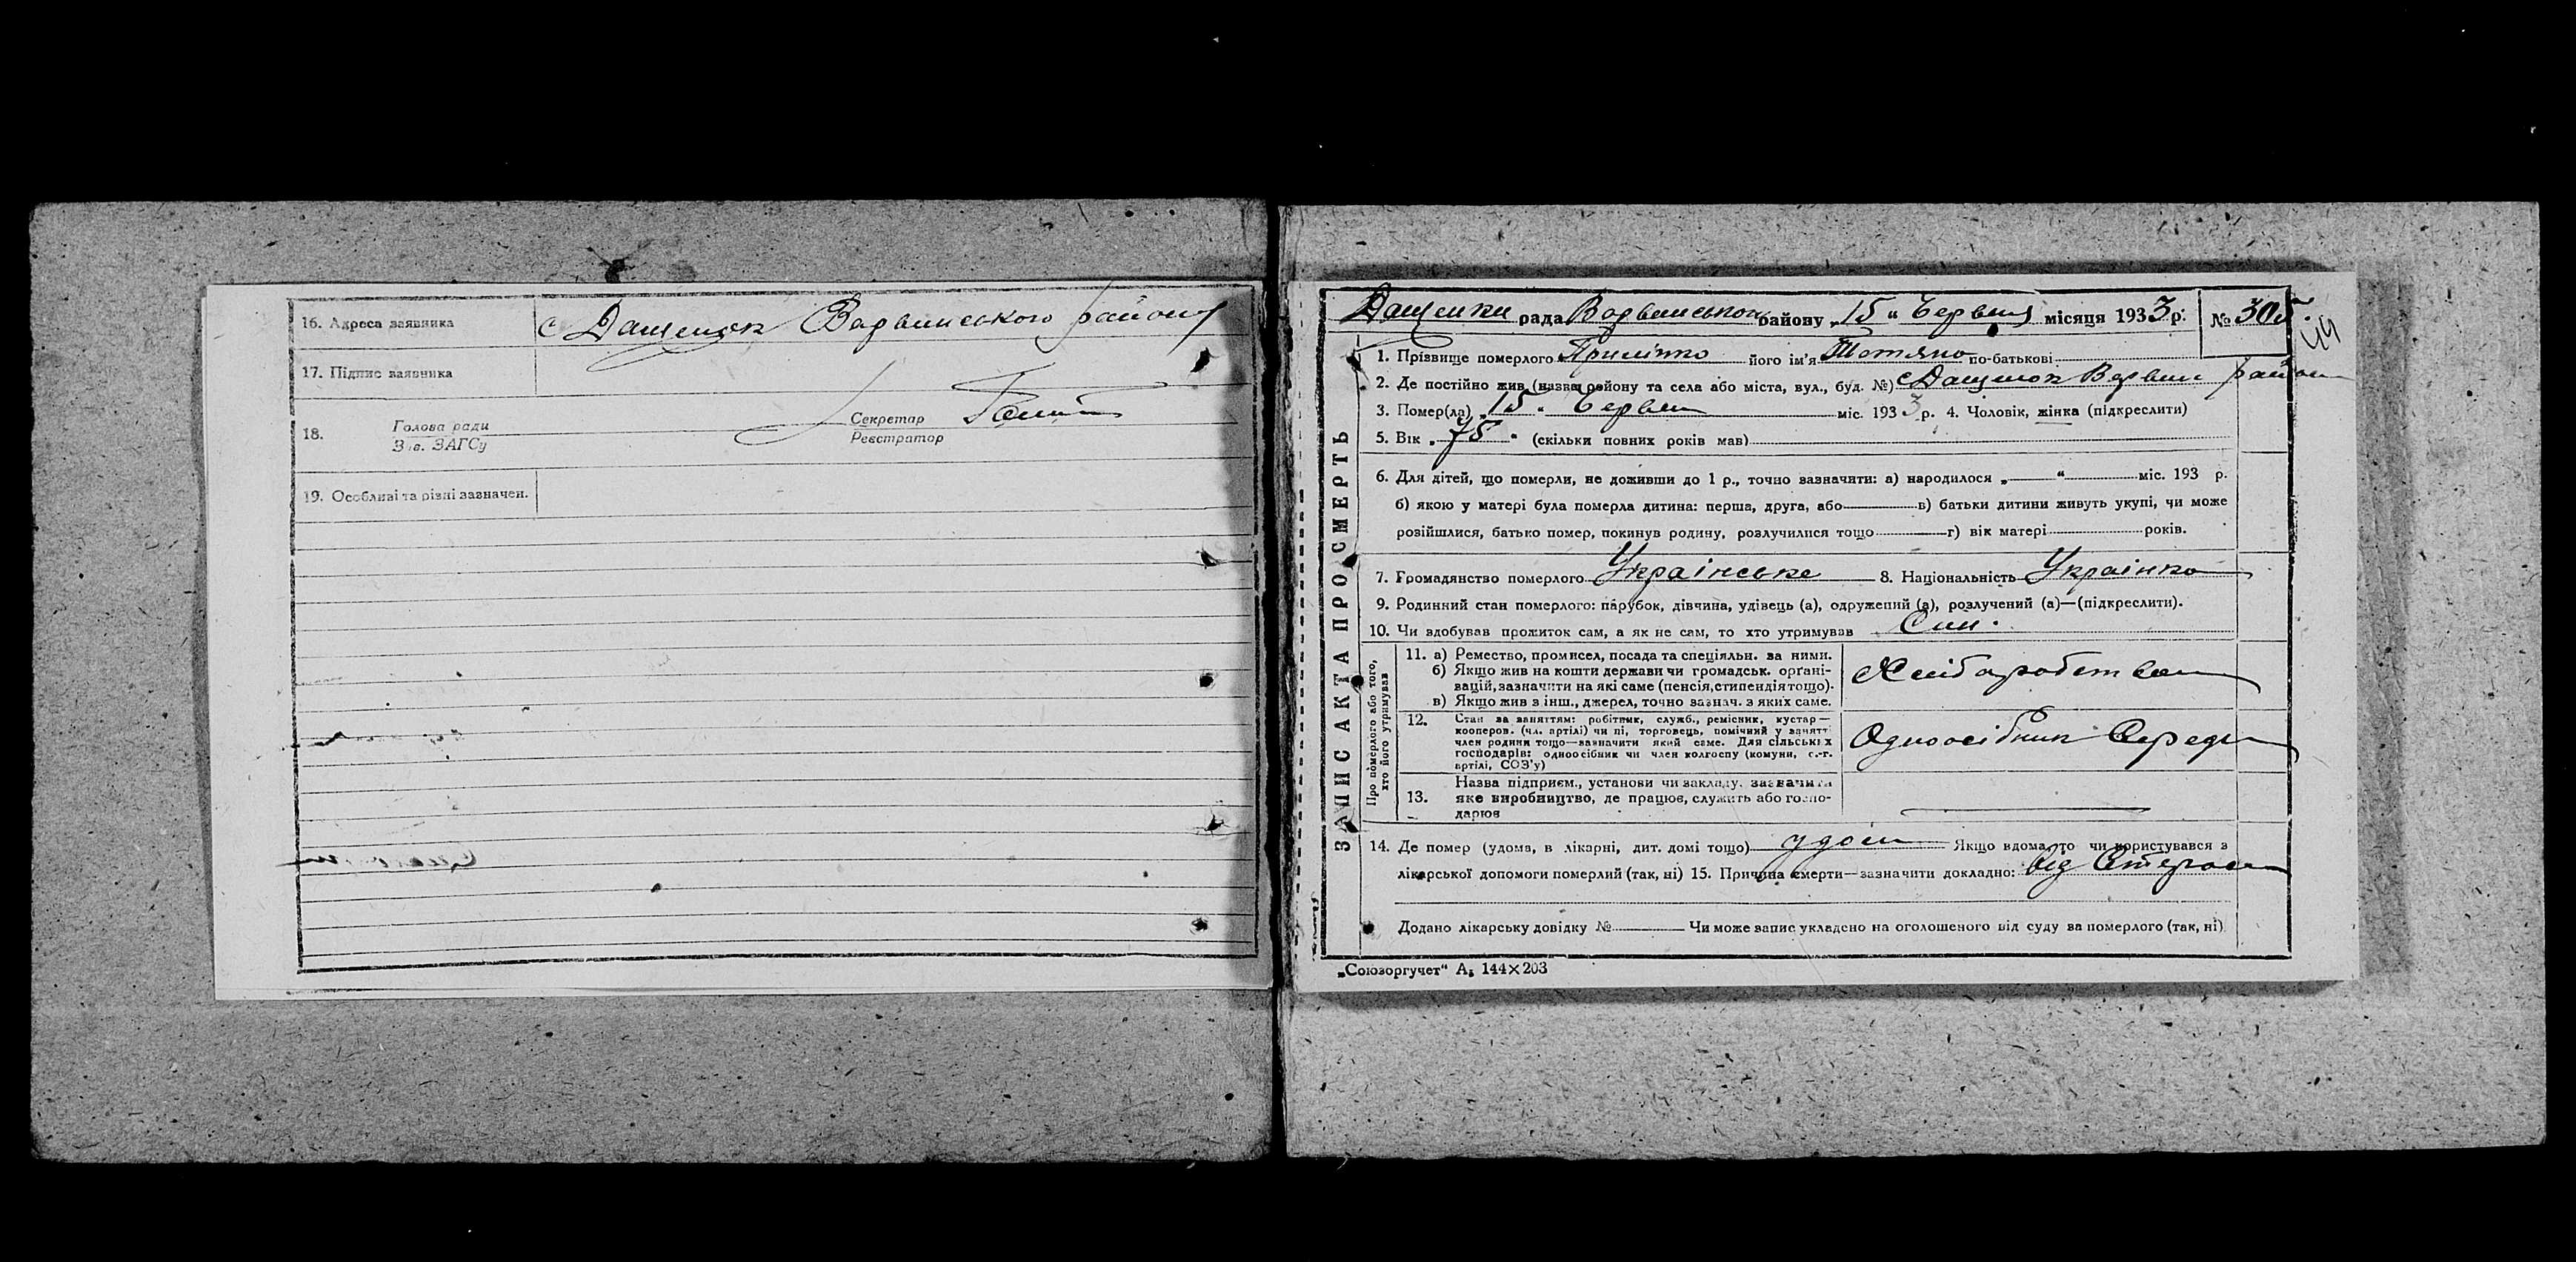 16. Адреса заявника с Дащенок Варвинського району
17. Підпис заявника
18. Голова ради Зав. ЗАГСу Секретар Реєстратор
19. Особливі та різні зазначен.
Дащенки рада Варвинського району „15“ Червня місяця 1933 р. № 305.
44
ЗАПИС АКТА ПРО СМЕРТЬ
1. Прізвище померлого його ім'я Тотяна по-батькові
2. Де постійно жив (назва району та села або міста, вул., буд. №) с Дащенок Варвин район
3. Помер(ла) „15“ Червня міс. 1933 р. 4. Чоловік, жінка (підкреслити)
5. Вік „75“ (скільки повних років мав)
6. Для дітей, що померли, не доживши до 1 р., точно зазначити: а) народилося „ “ міс. 193 р.
б) якою у матері була померла дитина: перша, друга, або в) батьки дитини живуть укупі, чи може
розійшлися, батько помер, покинув родину, розлучилися тощо г) вік матері років.
7. Громадянство померлого Українське 8. Національність Українка
9. Родинний стан померлого: парубок, дівчина, удівець (а), одружений (а), розлучений (а)—(підкреслити).
10. Чи здобував прожиток сам, а як не сам, то хто утримував Син.
Про померлого або того, хто його утримував
11. а) Ремество, промисел, посада та спеціяльн. за ними.
б) Якщо жив на кошти держави чи громадськ. орґані-
зацій, зазначити на які саме (пенсія, стипендія тощо).
в) Якщо жив з інш., джерел, точно зазнач. з яких саме.
Хліборобство
12. Стан за заняттям: робітник, служб., ремісник, кустар—
кооперов. (чл. артілі) чи ні, торговець, помічний у занятт
член родини тощо—зазначити який саме. Для сільських
господарів: одноосібник чи член колгоспу (комуни, с.-г.
артілі, СОЗ'у)
Одноосібник Середн
13. Назва підприєм., установи чи закладу, зазначити
яке виробництво, де працює, служить або госпо-
дарює
14. Де помер (удома, в лікарні, дит. домі тощо) удома Якщо вдома, то чи користувався з
лікарської допомоги померлий (так, ні) 15. Причина смерти—зазначити докладно: Від Старости
Додано лікарську довідку № Чи може запис укладено на оголошеного від суду за померлого (так, ні)
„Союзоргучет“ А₅ 144×203